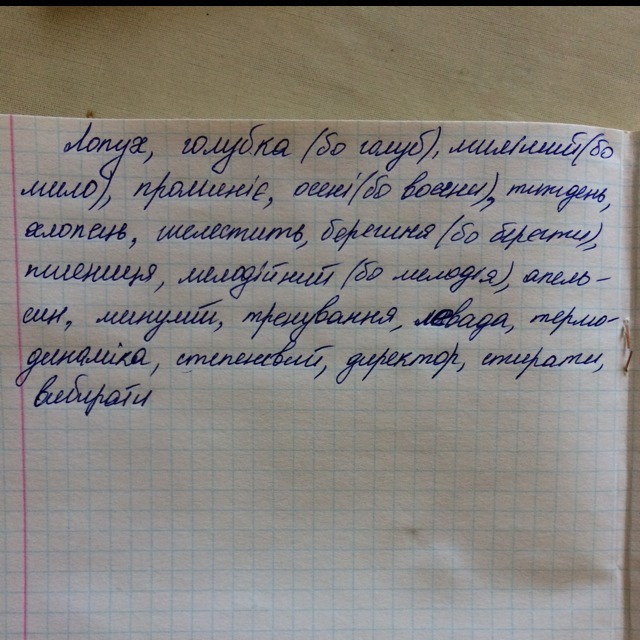 Лопух, голубка (бо голуб), миліший (бо
мило), променіє, осені (бо восени), тиждень,
хлопець, шелестить, берешся (бо берегти),
пшениця, мелодійний (бо мелодія), апель-
син, минулий, тренування, левада, термо-
динаміка, степеневий, директор, стирати,
вибирати